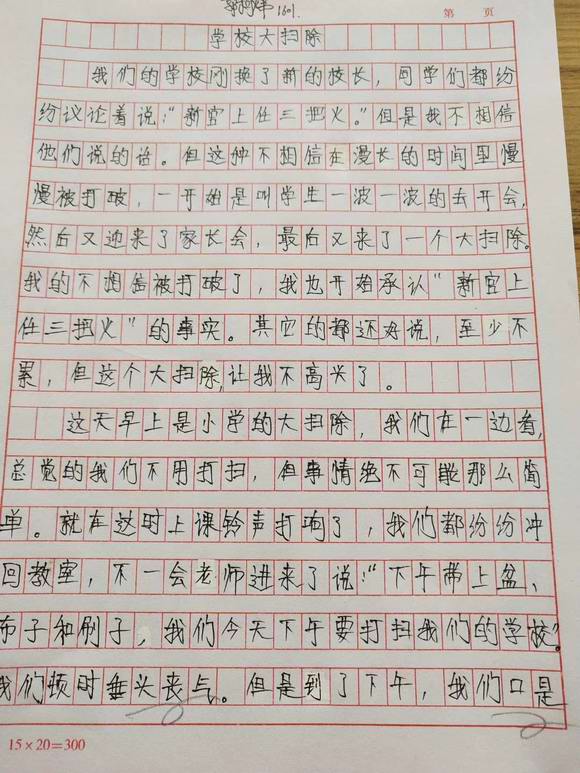 1601.
第 页
学校大扫除
我们的学校刚换了新的校长，同学们都纷
纷议论着说：“新官上任三把火。”但是我不相信
他们说的话。但这种不相信在漫长的时间里慢
慢被打破，一开始是叫学生一波一波的去开会，
然后又迎来了家长会，最后又来了一个大扫除。
我的不相信被打破了，我也开始承认“新官上
任三把火”的事实。其它的都还好说，至少不
累，但这个大扫除，让我不高兴了。
这天早上是小学的大扫除，我们在一边看，
总觉的我们不用打扫，但事情绝不可能那么简
单。就在这时上课铃声打响了，我们都纷纷冲
回教室，不一会老师进来了说：“下午带上盆、
布子和刷子，我们今天下午要打扫我们的学校”。
我们顿时垂头丧气。但是到了下午，我们口是
15×20=300